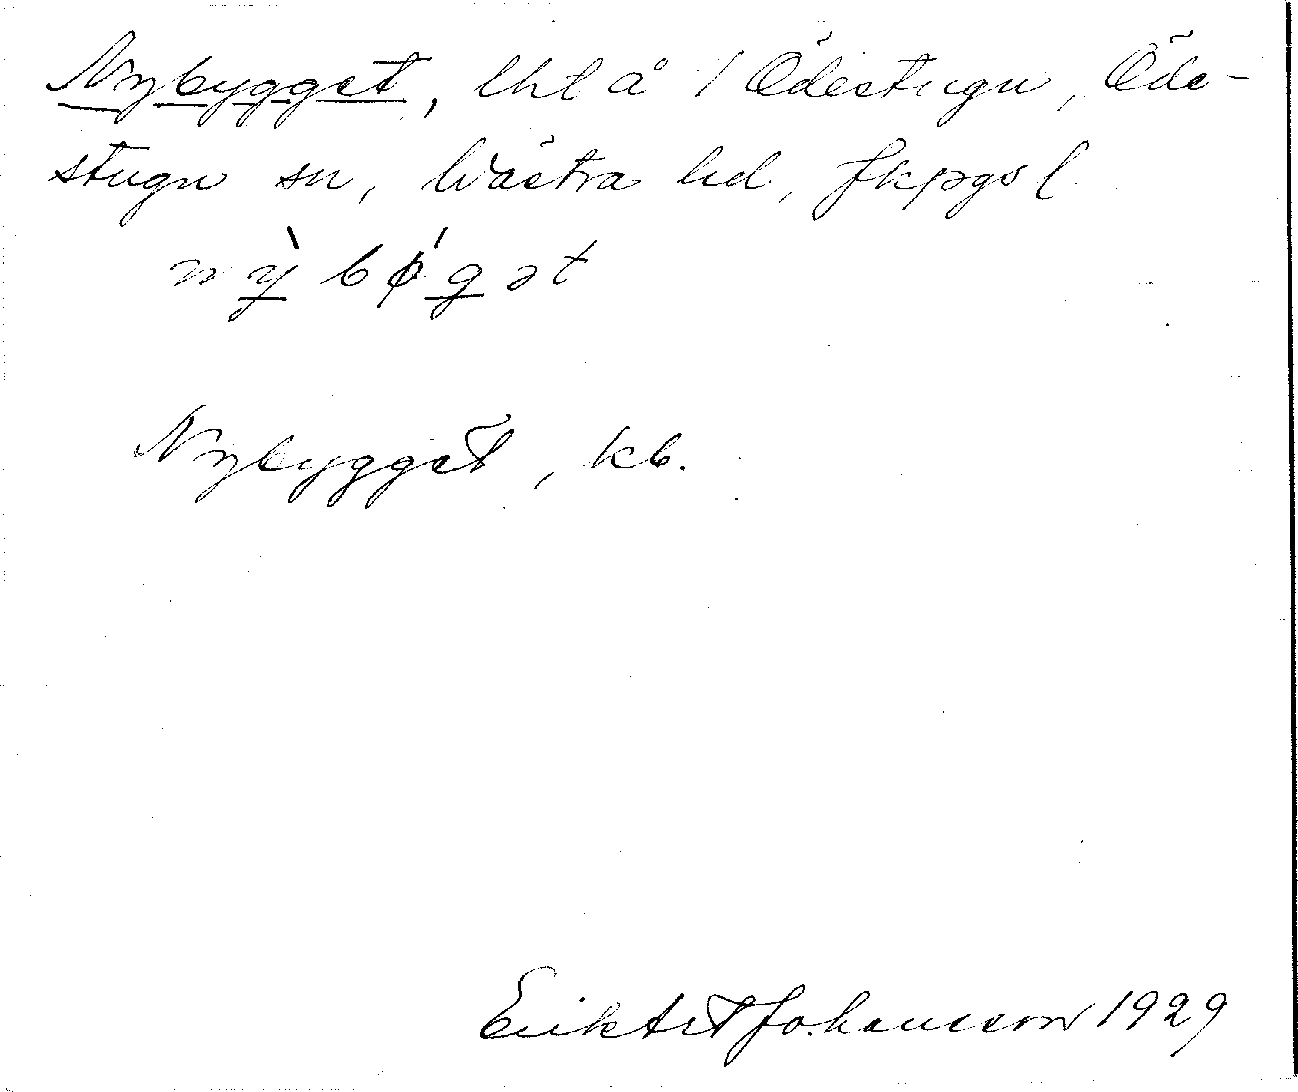 Nybygget, lht å 1 Ödestugu, Öde-
stugu sn, Västra hd, Jkpgs l
nỳbǿgət
Nybygget, kb.
Johansson 1929